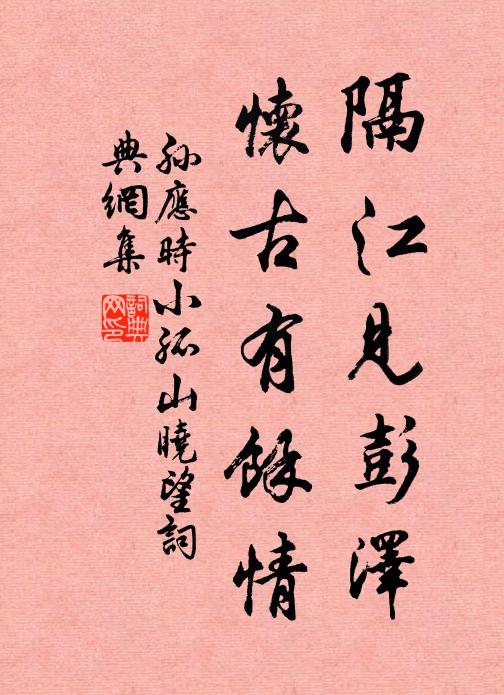 隔江見彭澤
懷古有餘情
孫應時小孤山曉望詞
典網集
詞典網印